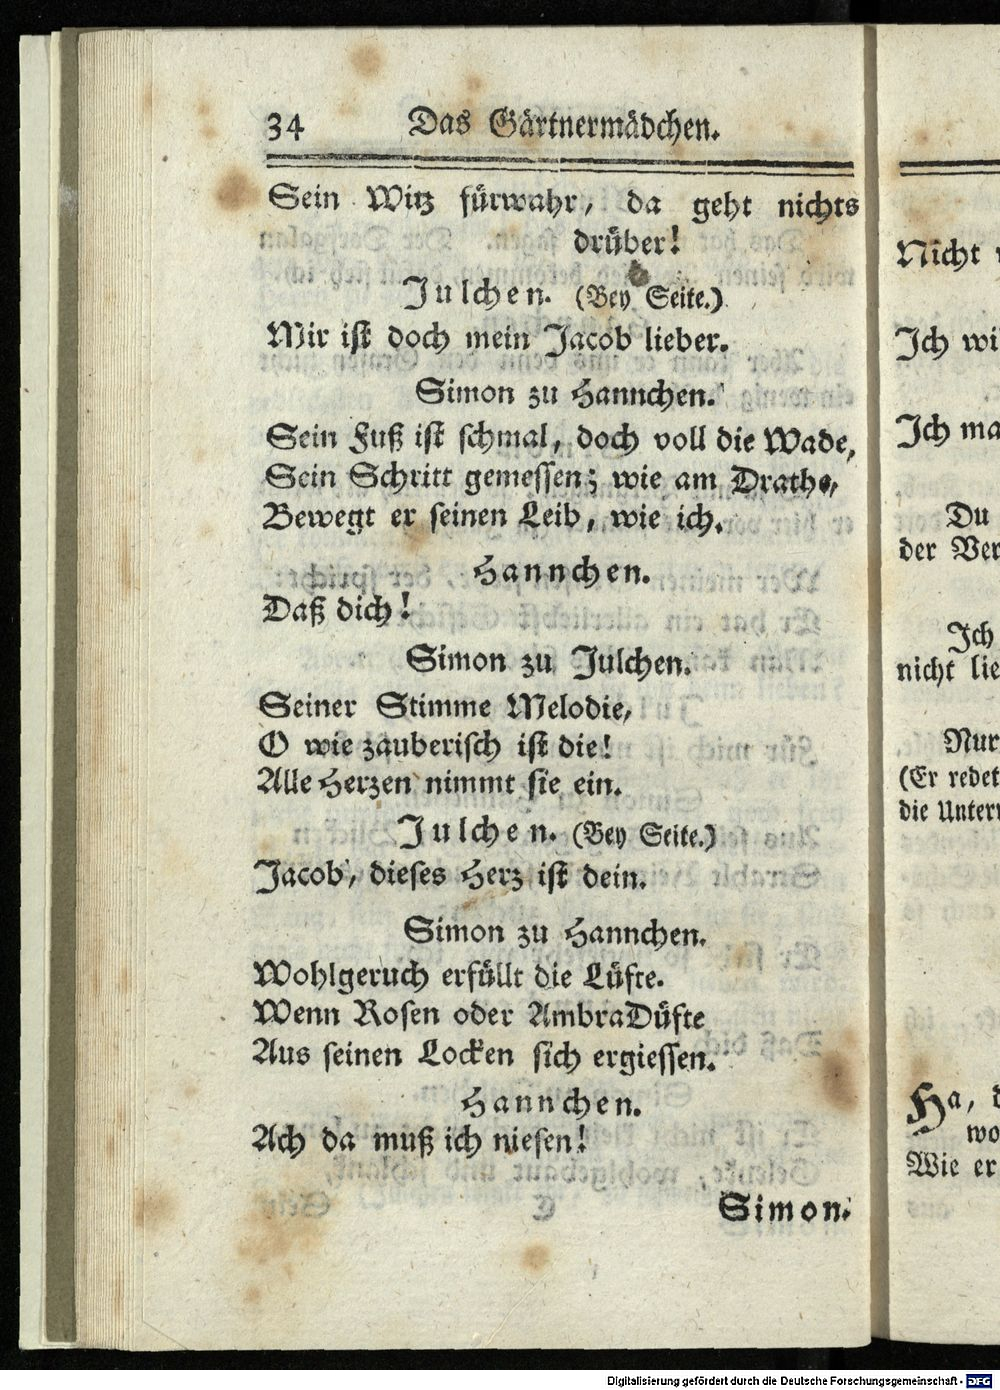 34 Das Gärtnermädchen.
Sein Witz fürwahr, da geht nichts
drüber!
Julchen. (Bey Seite.)
Mir ist doch mein Jacob lieber.
Simon zu Hannchen.
Sein Fuß ist schmal, doch voll die Wade,
Sein Schritt gemessen; wie am Drathe,
Bewegt er seinen Leib, wie ich.
Hannchen.
Daß dich!
Simon zu Julchen.
Seiner Stimme Melodie,
O wie zauberisch ist die!
Alle Herzen nimmt sie ein.
Julchen. (Bey Seite.)
Jacob, dieses Herz ist dein.
Simon zu Hannchen.
Wohlgeruch erfüllt die Lüfte.
Wenn Rosen oder AmbraDüfte
Aus seinen Locken sich ergiessen.
Hannchen.
Ach da muß ich niesen!
Simon.
Nicht
Ich wi
Ich ma
Du
der Ver
Ich
nicht lie
Nur
(Er redet
die Untern
Ha, d
wo
Wie er
Digitalisierung gefördert durch die Deutsche Forschungsgemeinschaft - DFG